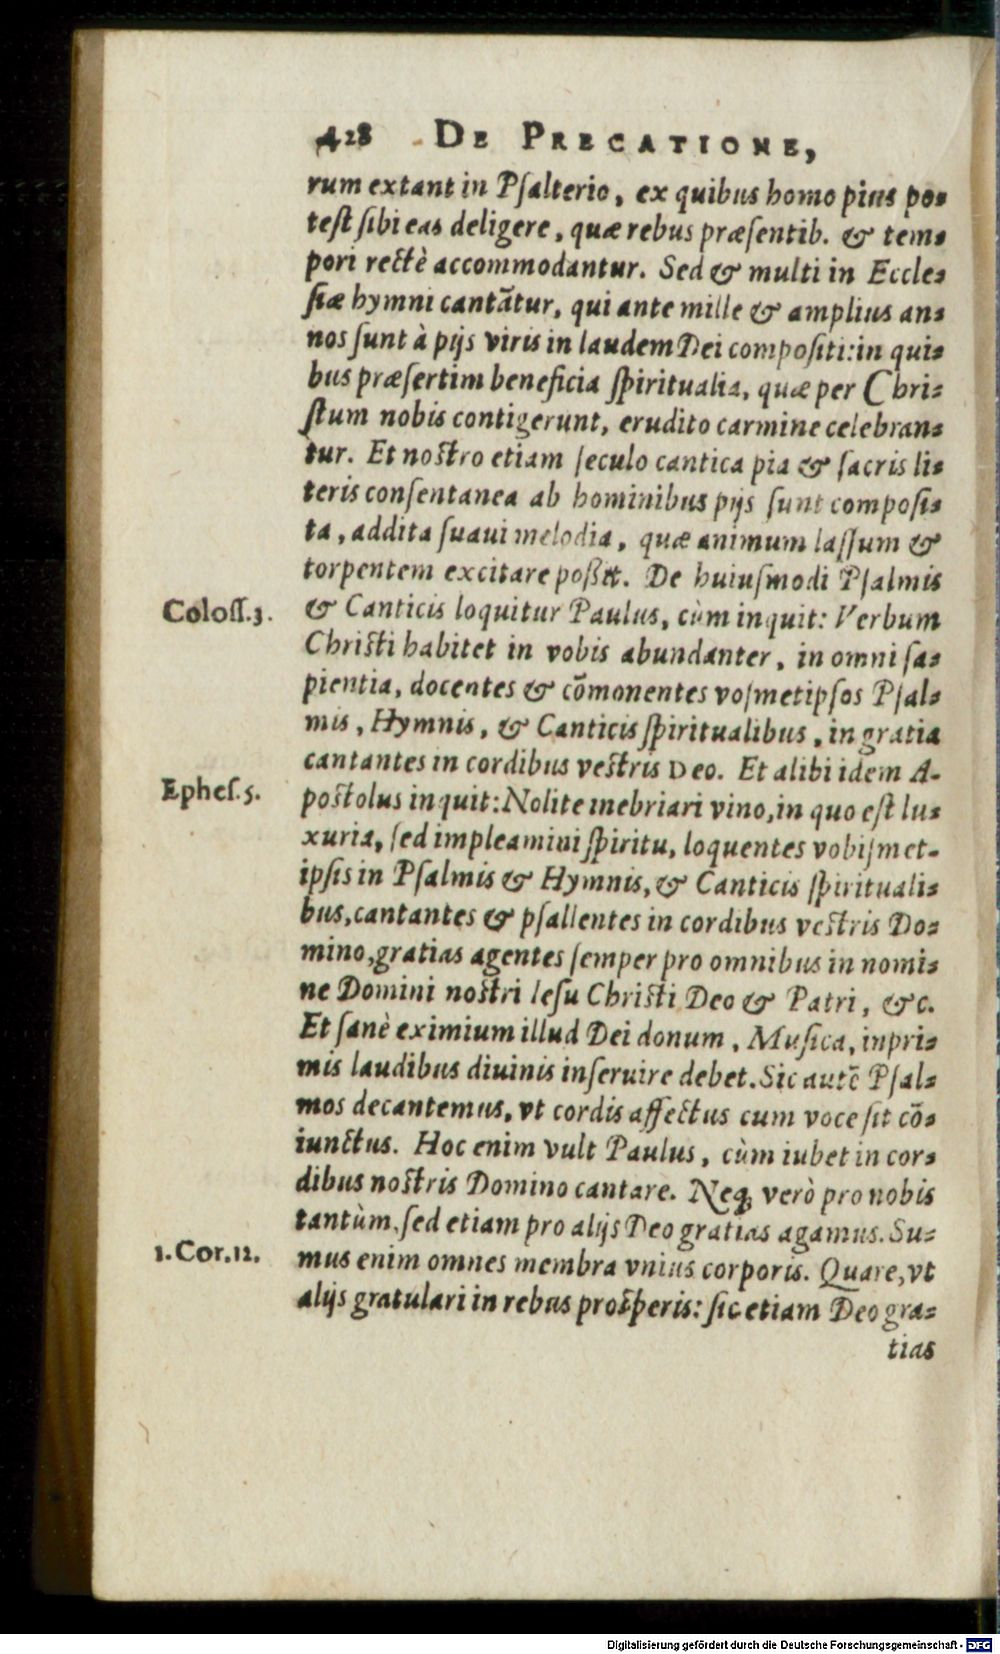 428 DE PRECATIONE,
rum extant in Pſalterio, ex quibus homo pius po-
teſt ſibi eas deligere, quæ rebus præſentib. & tem-
pori rectè accommodantur. Sed & multi in Eccle-
ſiæ hymni cantātur, qui ante mille & amplius an-
nos ſunt à pijs viris in laudem Dei compoſiti: in qui-
bus præſertim beneficia ſpiritualia, quæ per Chri-
ſtum nobis contigerunt, erudito carmine celebran-
tur. Et noſtro etiam ſeculo cantica pia & ſacris li-
teris conſentanea ab hominibus pijs ſunt compoſi-
ta, addita ſuaui melodia, quæ animum laſſum &
torpentem excitare poßit. De huiuſmodi Pſalmis
Coloſſ.3. & Canticis loquitur Paulus, cùm inquit: Verbum
Chriſti habitet in vobis abundanter, in omni ſa-
pientia, docentes & cōmonentes voſmetipſos Pſal-
mis, Hymnis, & Canticis ſpiritualibus, in gratia
cantantes in cordibus veſtris Deo. Et alibi idem A-
Epheſ.5. poſtolus inquit: Nolite inebriari vino, in quo eſt lu-
xuria, ſed impleamini ſpiritu, loquentes vobiſmet-
ipſis in Pſalmis & Hymnis, & Canticis ſpirituali-
bus, cantantes & pſallentes in cordibus veſtris Do-
mino, gratias agentes ſemper pro omnibus in nomi-
ne Domini noſtri Ieſu Chriſti Deo & Patri, &c.
Et ſanè eximium illud Dei donum, Muſica, inpri-
mis laudibus diuinis inſeruire debet. Sic autē Pſal-
mos decantemus, vt cordis affectus cum voce ſit cō-
iunctus. Hoc enim vult Paulus, cùm iubet in cor-
dibus noſtris Domino cantare. Neq; verò pro nobis
tantùm, ſed etiam pro alijs Deo gratias agamus. Su-
1.Cor.12. mus enim omnes membra vnius corporis. Quare, vt
alijs gratulari in rebus proſperis: ſic etiam Deo gra-
tias
Digitalisierung gefördert durch die Deutsche Forschungsgemeinschaft - DFG